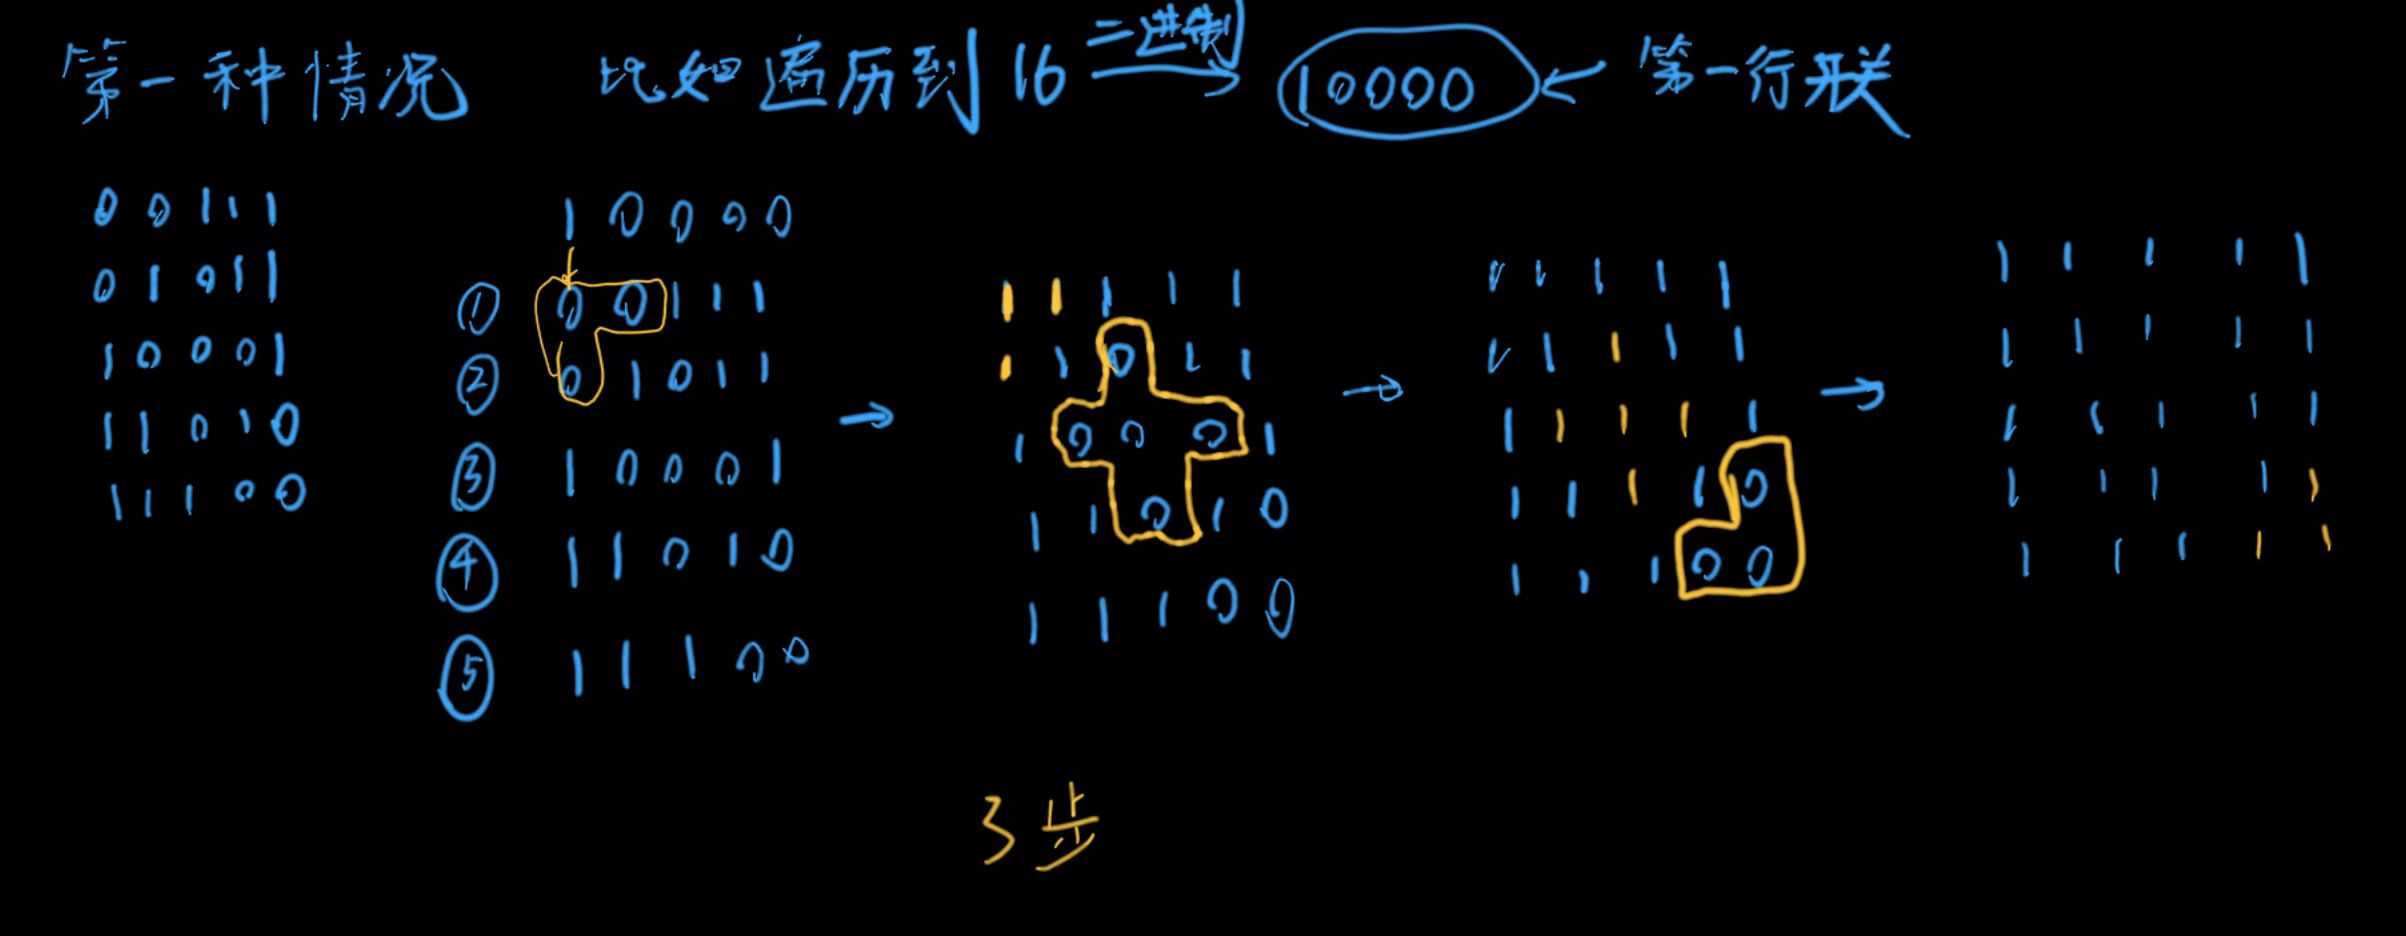 第一种情况 比如遍历到16 二进制 10000 第一行开关
0 0 1 1 1
0 1 0 1 1
1 0 0 0 1
1 1 0 1 0
1 1 1 0 0
1 0 0 0 0
① 0 0 1 1 1
② 0 1 0 1 1
③ 1 0 0 0 1
④ 1 1 0 1 0
⑤ 1 1 1 0 0
1 1 1 1 1
1 1 0 1 1
1 0 0 0 1
1 1 0 1 0
1 1 1 0 0
1 1 1 1 1
1 1 1 1 1
1 1 1 1 1
1 1 1 1 0
1 1 1 0 0
1 1 1 1 1
1 1 1 1 1
1 1 1 1 1
1 1 1 1 1
1 1 1 1 1
3步